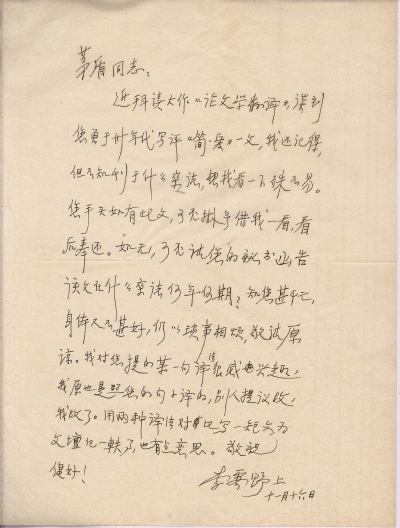 茅盾同志：
近拜读大作《论文学翻译》，谈到
您曾于卅年代写评《简·爱》一文，我还记得，
但不知刊于什么杂志，想找看一下殊不易。
您手头如有此文，可否掛号借我一看，看
后奉还。如无，可否试您的秘书函告
该文在什么杂志何年何期？知您甚忙，
身体又不甚好，仍以琐事相烦，敬试原
谅。我对您提的某一句译很感兴趣，
我原也是照您的句子译的，别人提议改，
我改了。用两种译传对比写一短文为
文坛记一轶事，也有意思。敬祝
健好！
李霁野上
十一月十六日